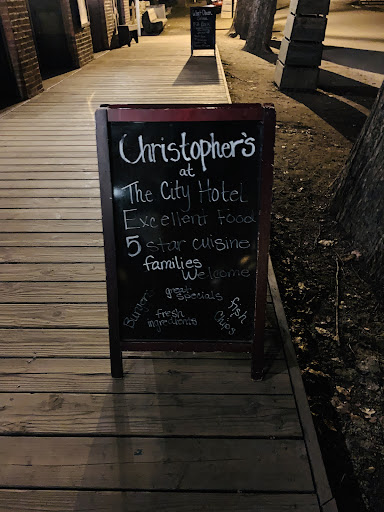 Christopher's
at
The City Hotel
Excellent food
5 star cuisine
families
Welcome
great
specials
Burgers
fresh
ingredients
fish
Chips